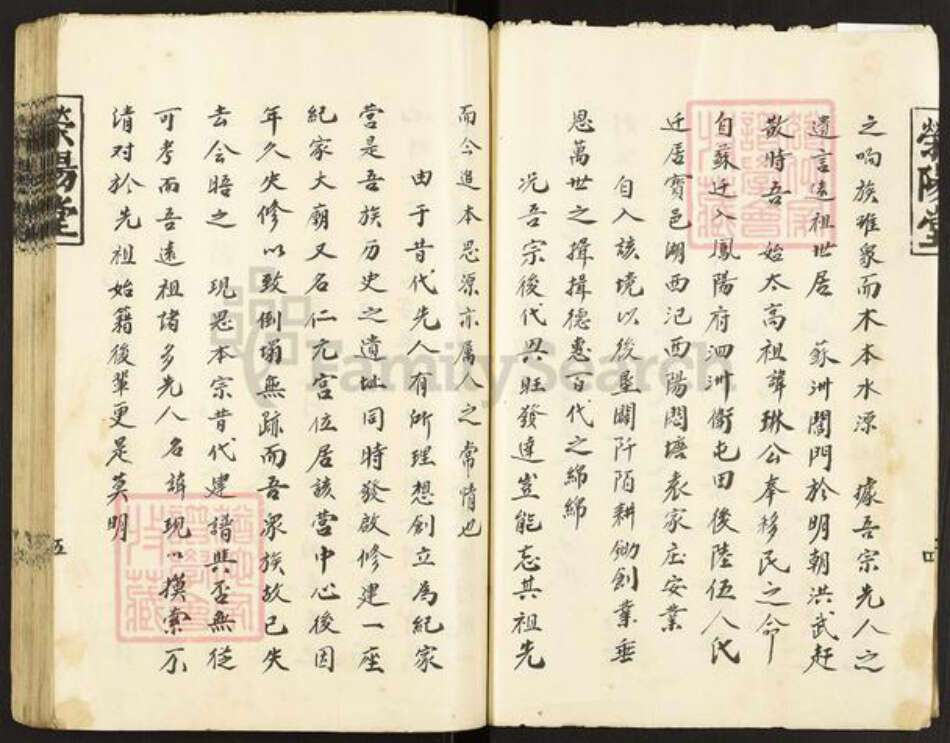 榮陽堂
之响族雖衆而木本水源 據吾宗先人之
遺言遠祖世居 蘇洲閶門於明朝洪武赶
散時吾 始太高祖諱琳公奉移民之命
自蘇迁入鳳陽府泗洲衛屯田後陸伍人代
迁居寳邑湖西氾西陽悶塘袁家庄安業
自入該境以後墾闢阡陌耕鋤創業垂
恩萬世之揖揖德惠百代之綿綿
况吾宗後代興旺發達豈能忘其祖先
四
而今追本思源亦属人之常情也
由于昔代先人有所理想創立為紀家
营是吾族历史之遺址同時發啟修建一座
紀家大廟又名仁元宫位居該营中心後因
年久失修以致倒塌無跡而吾衆族故已失
去会晤之 現思本宗昔代建譜與否無從
可考而吾遠祖諸多先人名諱現以摸索不
清对於先祖始籍後輩更是莫明
五
榮陽堂
FamilySearch